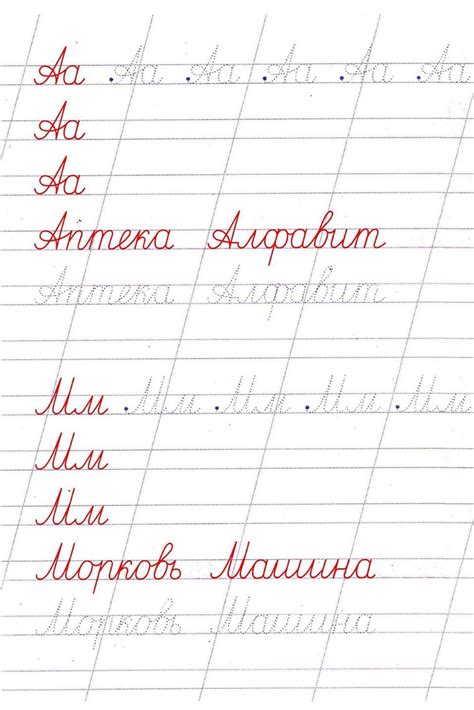 Аа Аа Аа Аа Аа Аа
Аа
Аа
Аптека Алфавит
Аптека Алфавит
Мм Мм Мм Мм Мм
Мм
Мм
Морковь Машина
Морковь Машина